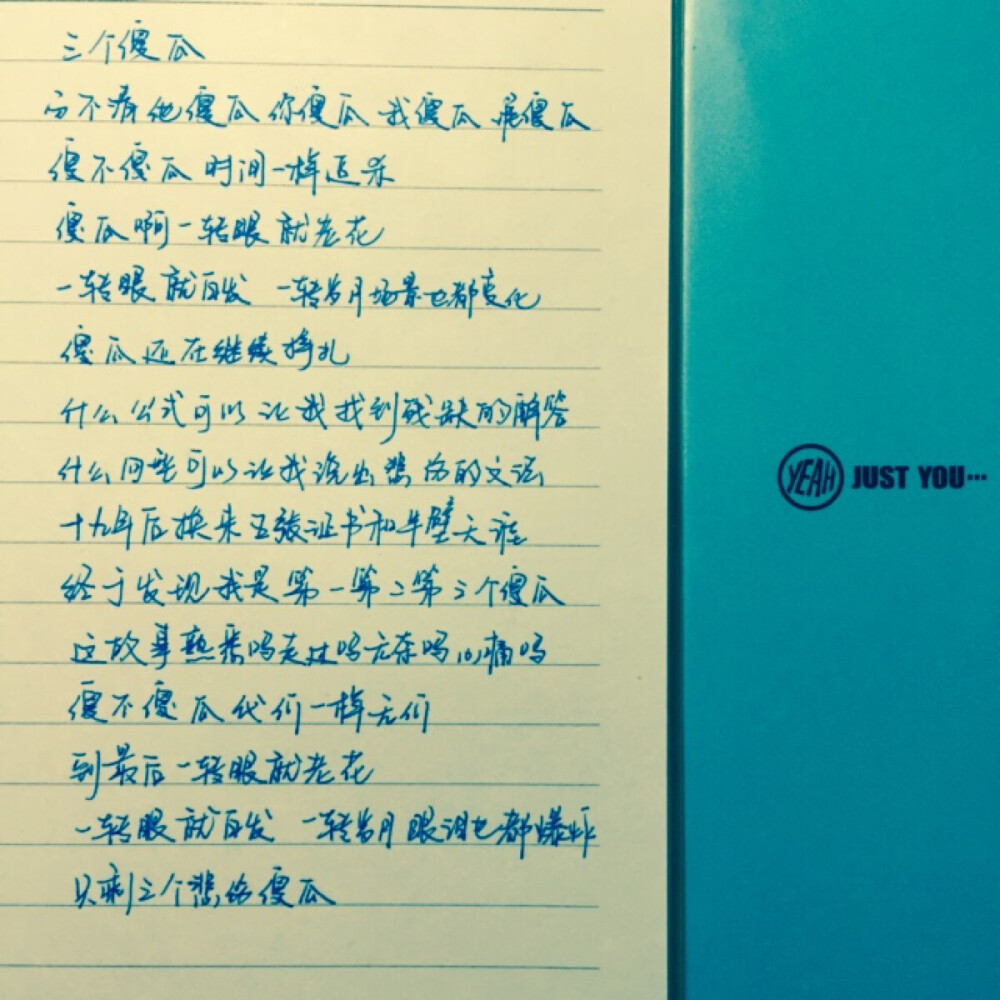 三个傻瓜
而不为他傻瓜 你傻瓜 我傻瓜 傻瓜
傻不傻瓜 时间一样追杀
傻瓜啊一转眼就老花
一转眼就白发 一转岁月场景也都变化
傻瓜还在继续挣扎
什么公式可以让我找到残缺的解答
什么回路可以让我流出悲伤的文法
十九年后换来五张证书和半壁天涯
终于发现我是第一第二第三个傻瓜
这故事熟悉吗走过吗无奈吗心痛吗
傻不傻瓜 我们一样无们
到最后一转眼就老花
一转眼就白发 一转岁月眼泪也都爆炸
只剩三个悲伤傻瓜
YEAH JUST YOU...